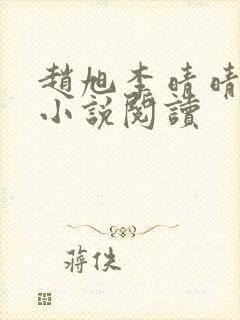 趙旭李晴晴
小說閱讀
蔣佚